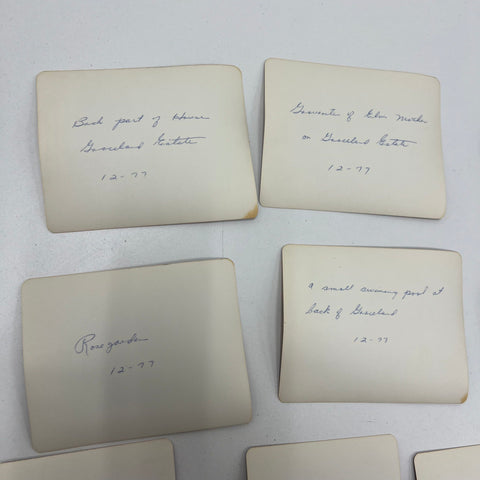 Back part of House
Graceland Estate
12-77
Gravesite of Elvis Mother
on Graceland Estate
12-77
Rose garden
12-77
a small swimming pool at
back of Graceland
12-77